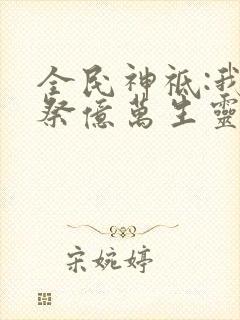 全民神祇:我
祭億萬生靈
宋婉婷